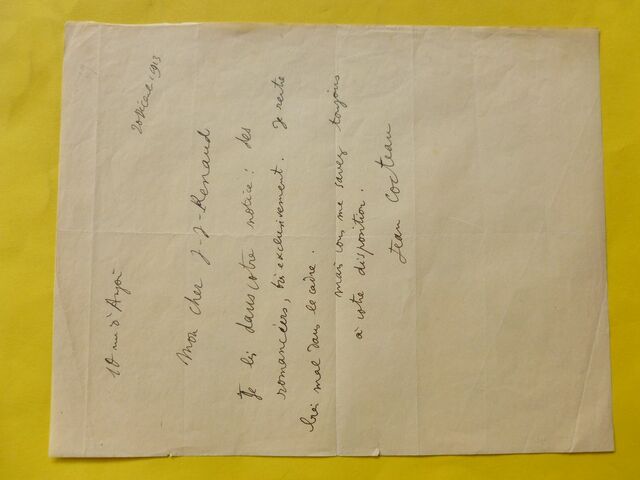 20 Décembre 1913
10 rue d'Anjou
Mon cher J-J-Renaud
Je lis dans votre notice : des
romanciers, exclusivement. Je rentre
mal dans le cadre.
mais vous me savez toujours
à votre disposition.
Jean Cocteau